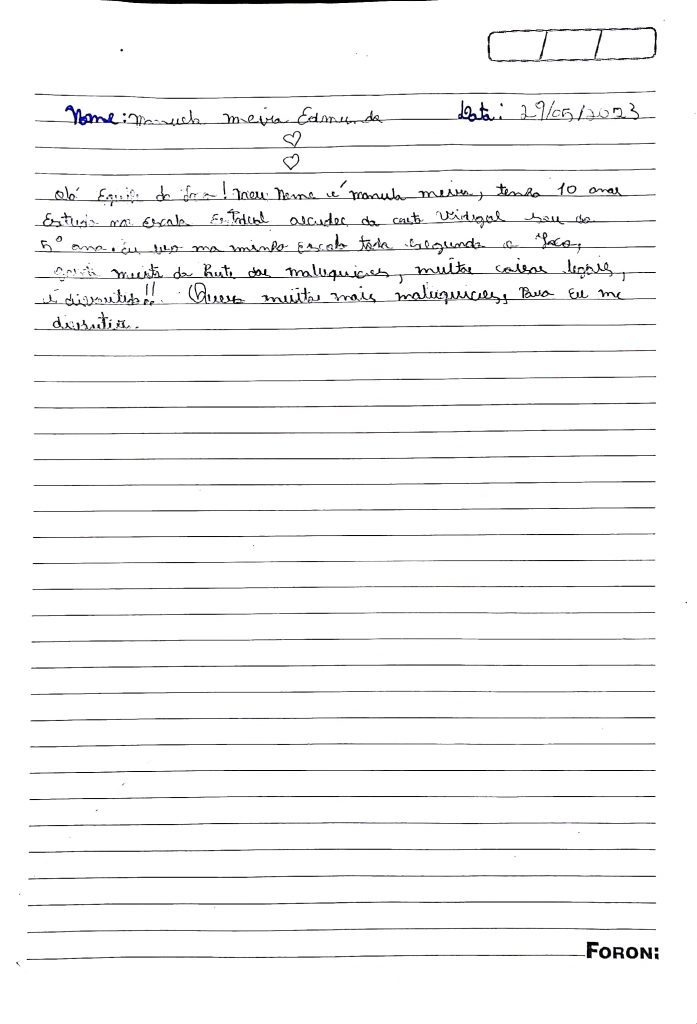 Nome: Manuela Meira Edmunda Data: 29/05/2023
Olá Equipe do Joca! Meu Nome é manuela meira, tenho 10 anos
Estudo na Escola Estadual couto Vidigal sou do
5º ano. eu leio na minha Escola toda Segunda o Joca,
gosto muito da Parte das maluquices, muitas coisas legais,
é divertido!! Quero muito mais maluquices, Para Eu me
divertir.
FORONI